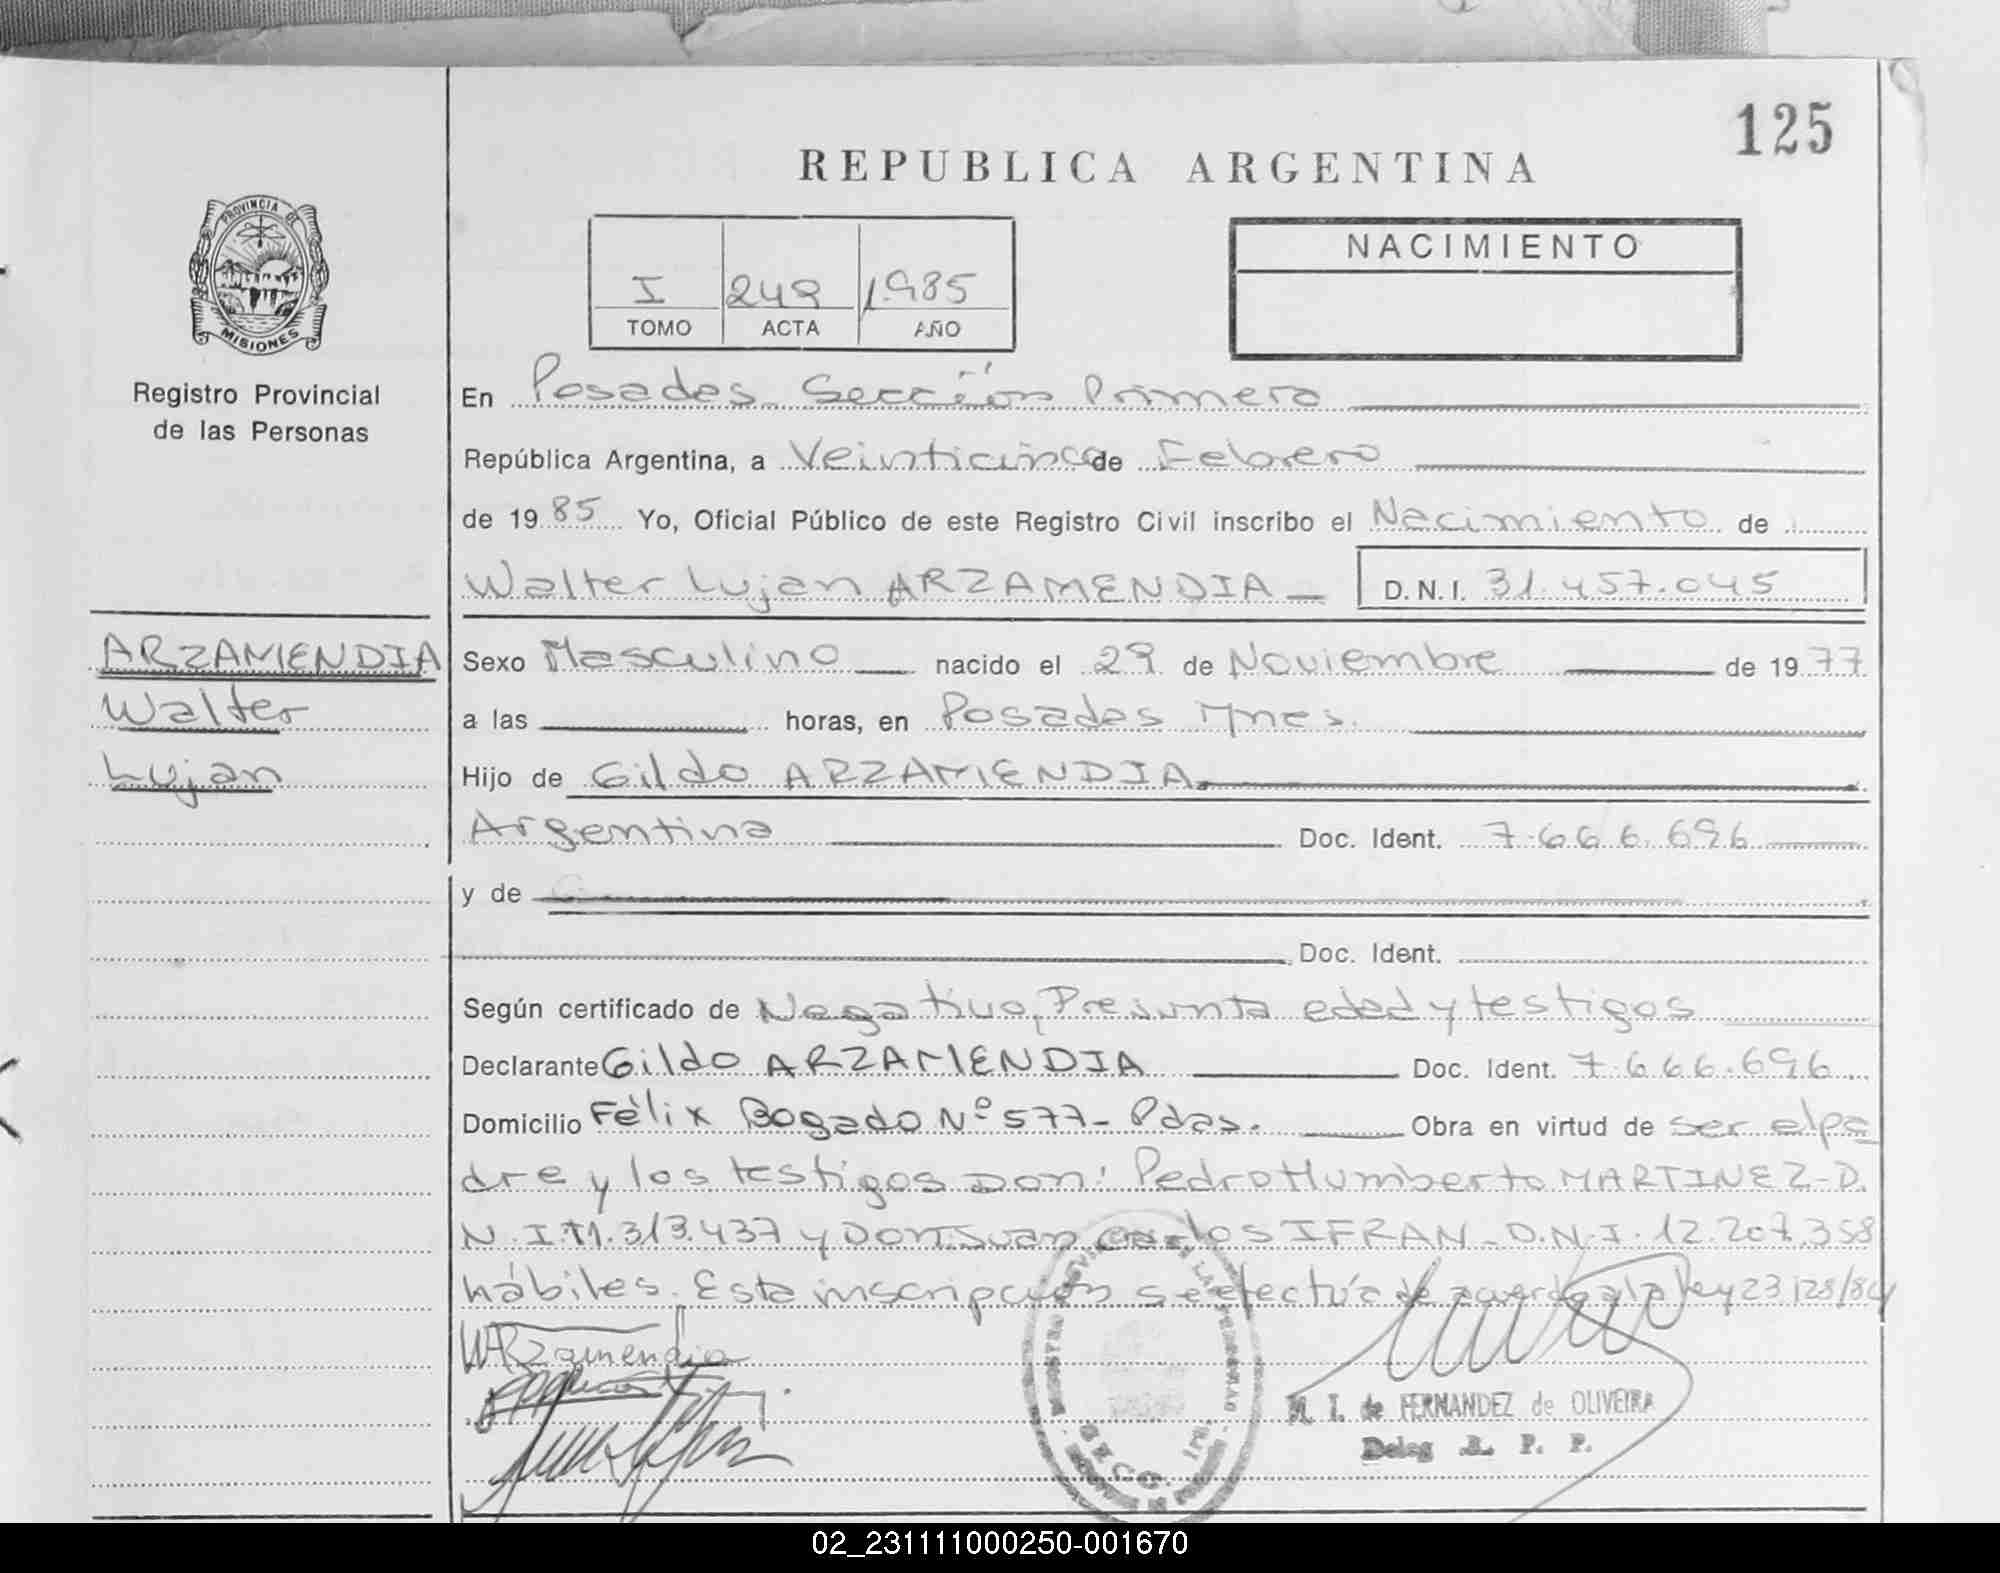 125
REPUBLICA ARGENTINA
PROVINCIA DE
MISIONES
NACIMIENTO
I 249 1985
TOMO ACTA AÑO
Registro Provincial
de las Personas
En Posadas Sección Primera
República Argentina, a Veinticinco de Febrero
de 1985 Yo, Oficial Público de este Registro Civil inscribo el Nacimiento de
Walter Lujan ARZAMENDIA D.N.I. 31.457.045
ARZAMENDIA
Walter
Lujan
Sexo Masculino nacido el 29 de Noviembre de 1977
a las horas, en Posadas Mnes.
Hijo de Gildo ARZAMENDIA
Argentina Doc. Ident. 7.666.696
y de
Doc. Ident.
Según certificado de Negativo, Presunta edad y testigos
Declarante Gildo ARZAMENDIA Doc. Ident. 7.666.696
Domicilio Félix Bogado Nº 577- Pdas. Obra en virtud de ser el pa
dre y los testigos Don: Pedro Humberto MARTINEZ-D.
N.I. 11.313.437 y Don Juan Carlos IFRAN-D.N.I. 12.207.358
hábiles. Esta inscripción se efectúa de acuerdo a la ley 23128/84
WArzamendia
M. I. de FERNANDEZ de OLIVEIRA
Deleg R. P. P.
SECC. 1ra.
02_231111000250-001670